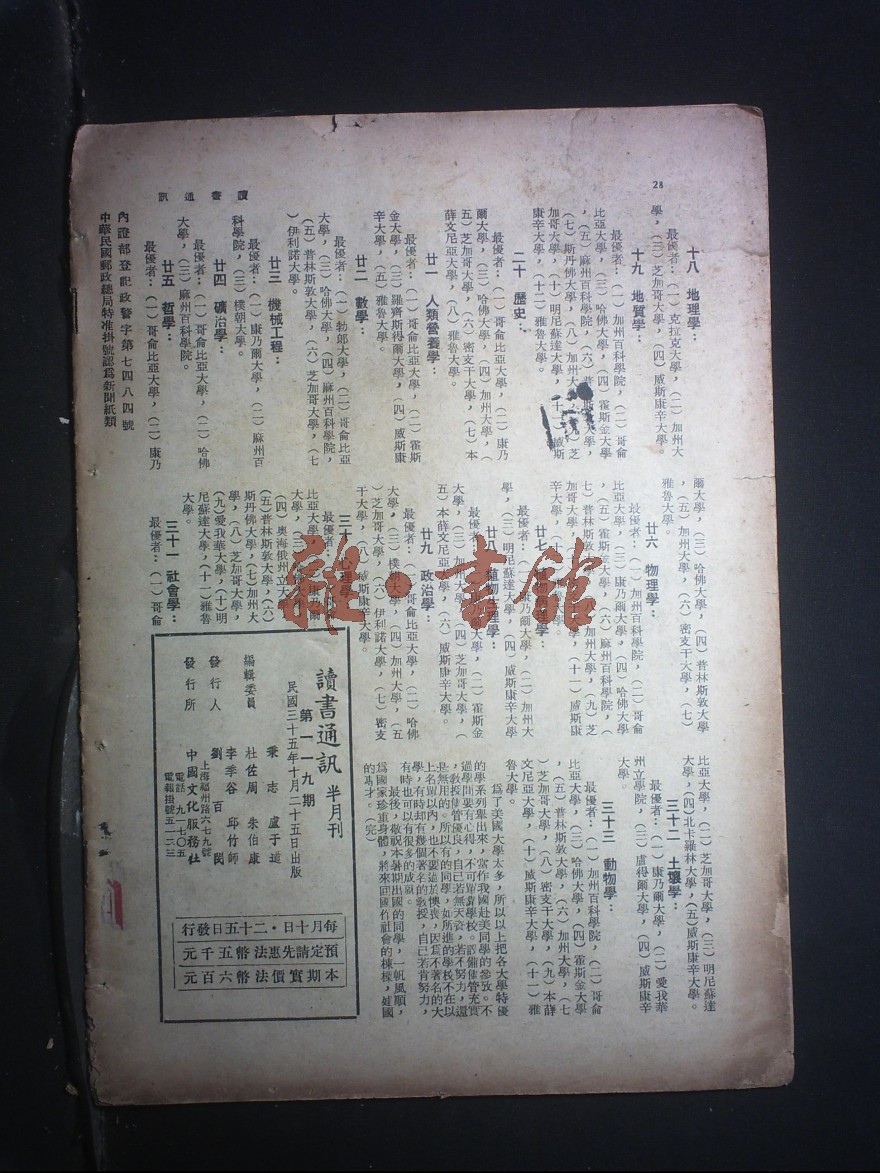 28
讀書通訊
十八 地理學：
最優者：（一）克拉克大學，（二）加州大
學，（三）芝加哥大學，（四）威斯康辛大學。
十九 地質學：
最優者：（一）加州百科學院，（二）哥侖
比亞大學，（三）哈佛大學，（四）霍斯金大學
，（五）麻州百科學院，（六）普林斯敦大學，
（七）斯丹佛大學，（八）加州大
加哥大學，（十）明尼蘇達大學，（十一）威斯
康辛大學，（十二）雅魯大學。
二十 歷史：
最優者：（一）哥侖比亞大學，（二）康乃
爾大學，（三）哈佛大學，（四）加州大學，（
五）芝加哥大學，（六）密支干大學，（七）本
薛文尼亞大學，（八）雅魯大學。
廿一 人類營養學：
最優者：（一）哥侖比亞大學，（二）霍斯
金大學，（三）羅齊斯得爾大學，（四）威斯康
辛大學，（五）雅魯大學。
廿二 數學：
最優者：（一）勃郎大學，（二）哥侖比亞
大學，（三）哈佛大學，（四）麻州百科學院，
（五）普林斯敦大學，（六）芝加哥大學，（七
）伊利諾大學。
廿三 機械工程：
最優者：（一）康乃爾大學，（二）麻州百
科學院，（三）樸朝大學。
廿四 礦冶學：
最優者：（一）哥侖比亞大學，（二）哈佛
大學，（三）麻州百科學院。
廿五 哲學：
最優者：（一）哥侖比亞大學，（二）康乃
爾大學，（三）哈佛大學，（四）普林斯敦大學
，（五）加州大學，（六）密支干大學，（七）
雅魯大學。
廿六 物理學：
最優者：（一）加州百科學院，（二）哥侖
比亞大學，（三）康乃爾大學，（四）哈佛大學
，（五）霍斯金大學，（六）麻州百科學院，（
七）普林斯敦大學，（八）加州大學，（九）芝
加哥大學，（十）明尼蘇達大學，（十一）威斯康
辛大學。
廿七
最優者：（一）康乃爾大學，（二）加州大
學，（三）明尼蘇達大學，（四）威斯康辛大學
廿八 植物生理學：
最優者：（二）霍斯金
大學，（三）加州大學，（四）芝加哥大學，（
五）本薛文尼亞大學，（六）威斯康辛大學。
廿九 政治學：
最優者：（一）哥侖比亞大學，（二）哈佛
大學，（三）樸朝大學，（四）加州大學，（五
）芝加哥大學，（六）伊利諾大學，（七）密支
干大學，（八）威斯康辛大學。
三十 心理學：
（四）奧海俄州立大
（五）普林斯敦大學，（六）
斯丹佛大學，（七）加州大
學，（八）芝加哥大學，
（九）愛我華大學，（十）明
尼蘇達大學，（十一）雅魯
大學。
三十一 社會學：
最優者：（一）哥侖
比亞大學，（二）芝加哥大學，（三）明尼蘇達
大學，（四）北卡羅林大學，（五）威斯康辛大學。
三十二 土壤學：
最優者：（一）康乃爾大學，（二）愛我華
州立學院，（三）盧得爾大學，（四）威斯康辛
大學。
三十三 動物學：
最優者：（一）加州百科學院，（二）哥侖
比亞大學，（三）哈佛大學，（四）霍斯金大學
，（五）普林斯敦大學，（六）加州大學，（七
）芝加哥大學，（八）密支干大學，（九）本薛
文尼亞大學，（十）威斯康辛大學，（十一）雅
魯大學。
為了美國大學太多，所以以上把各大學特優
的學系列舉出來，當作我國赴美同學的參攷。不
過學問要有心得，不可單靠學校。設備儘管充實
，教授儘管優良，自己若無天資，若不努力，還
是無用的。所以有的同學，如所進的學校不在以
上名單以內，也不要過於懊喪，因爲不著名的大
學，有時却有幾個著名的教授，自己若肯努力，
有時也可以有很多的成就。
最後，敬祝本暑期出國的同學，一帆風順，
為國家珍重身體，將來回國作社會的棟樑，建國
的基才。（完）
讀書通訊 半月刊
第一一九期
民國三十五年十月二十五日出版
編輯委員
秉志 盧于道
杜佐周 朱伯康
李季谷 邱竹師
發行人 劉百閔
發行所 中國文化服務社
上海福州路六七九號
電話 九一七〇五
電報掛號五一二三
每月十日・二十五日發行
預定請先惠法幣五千元
本期實價法幣六百元
內證部登記政警字第七四八四號
中華民國郵政總局特准掛號認爲新聞紙類
雜・書館